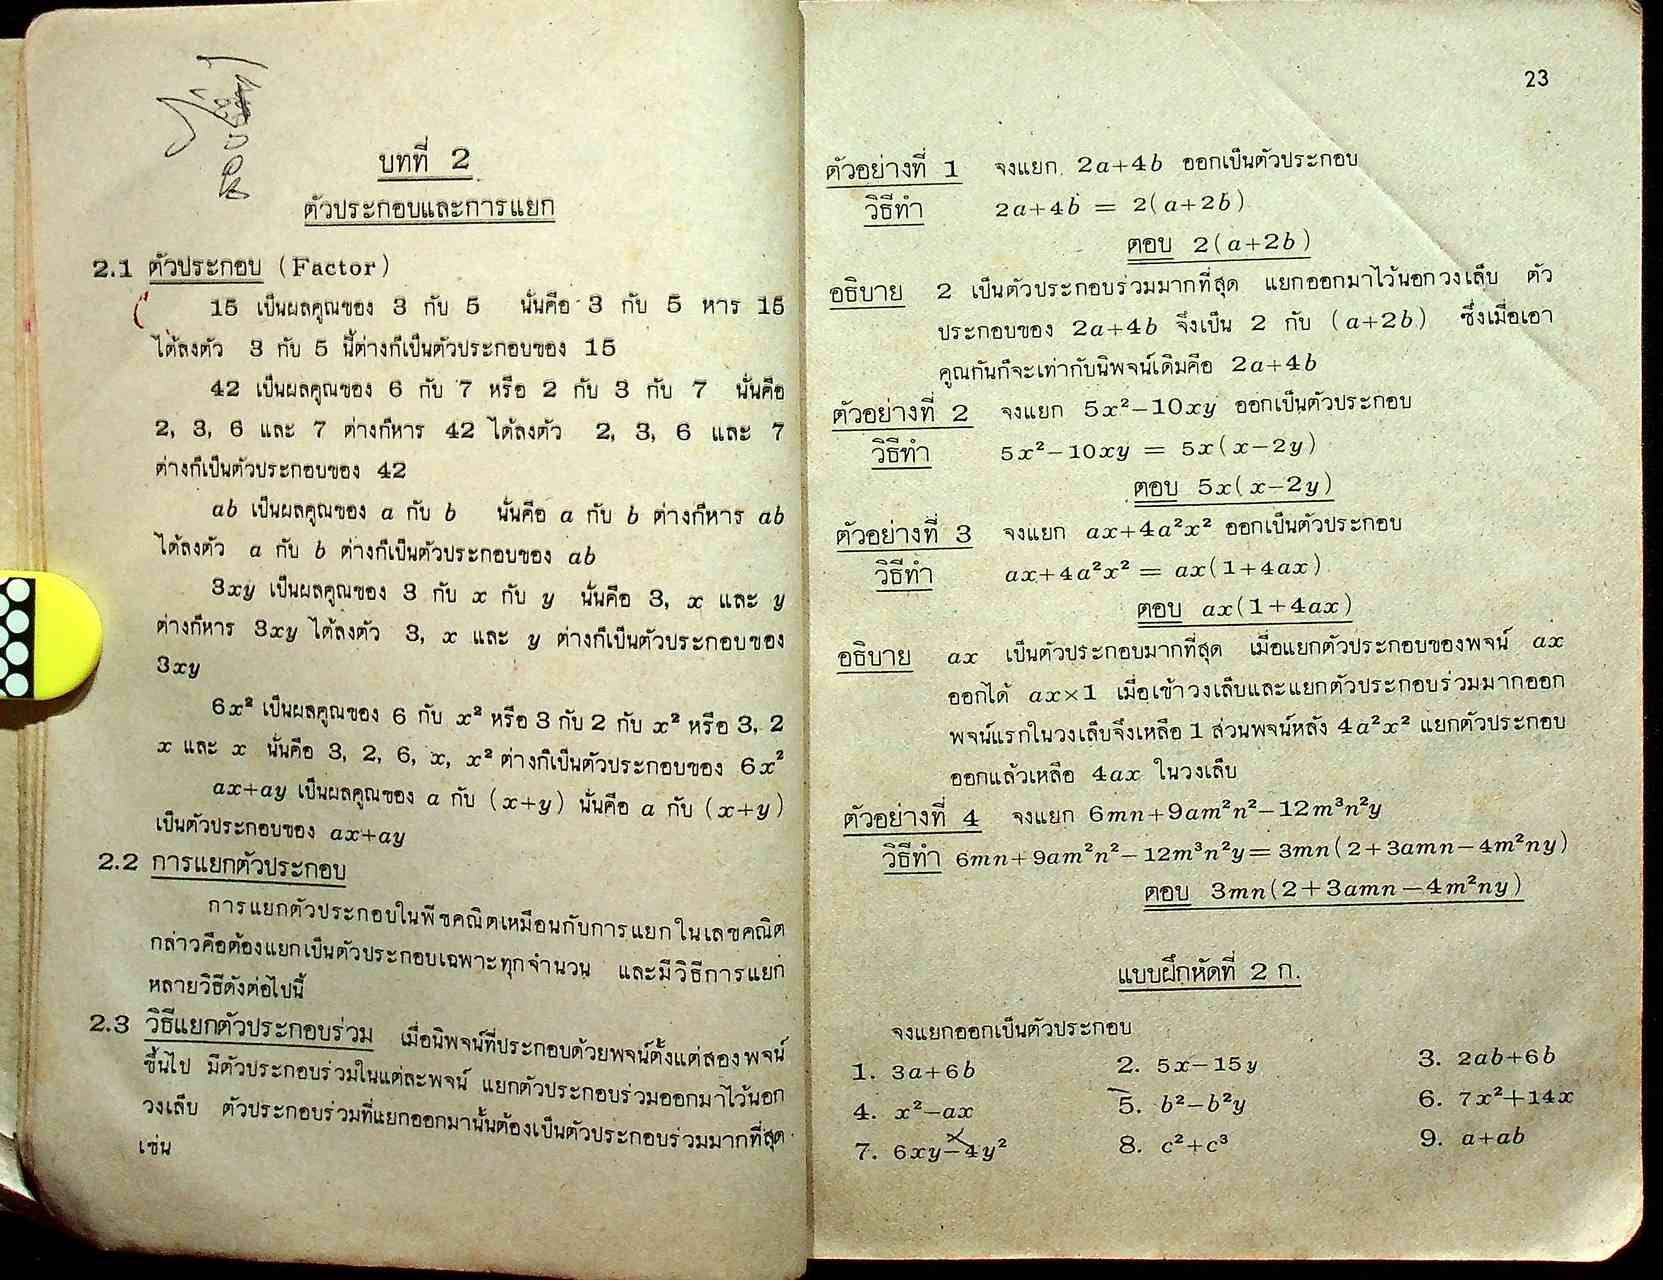 บทที่ 2
ตัวประกอบและการแยก
2.1 ตัวประกอบ (Factor)
15 เป็นผลคูณของ 3 กับ 5 นั่นคือ 3 กับ 5 หาร 15
ได้ลงตัว 3 กับ 5 นี้ต่างก็เป็นตัวประกอบของ 15
42 เป็นผลคูณของ 6 กับ 7 หรือ 2 กับ 3 กับ 7 นั่นคือ
2, 3, 6 และ 7 ต่างก็หาร 42 ได้ลงตัว 2, 3, 6 และ 7
ต่างก็เป็นตัวประกอบของ 42
ab เป็นผลคูณของ a กับ b นั่นคือ a กับ b ต่างก็หาร ab
ได้ลงตัว a กับ b ต่างก็เป็นตัวประกอบของ ab
3xy เป็นผลคูณของ 3 กับ x กับ y นั่นคือ 3, x และ y
ต่างก็หาร 3xy ได้ลงตัว 3, x และ y ต่างก็เป็นตัวประกอบของ
3xy
6x² เป็นผลคูณของ 6 กับ x² หรือ 3 กับ 2 กับ x² หรือ 3, 2
x และ x นั่นคือ 3, 2, 6, x, x² ต่างก็เป็นตัวประกอบของ 6x²
ax+ay เป็นผลคูณของ a กับ (x+y) นั่นคือ a กับ (x+y)
เป็นตัวประกอบของ ax+ay
2.2 การแยกตัวประกอบ
การแยกตัวประกอบในพีชคณิตเหมือนกับการแยกในเลขคณิต
กล่าวคือต้องแยกเป็นตัวประกอบเฉพาะทุกจำนวน และมีวิธีการแยก
หลายวิธีดังต่อไปนี้
2.3 วิธีแยกตัวประกอบร่วม เมื่อนิพจน์ที่ประกอบด้วยพจน์ตั้งแต่สองพจน์
ขึ้นไป มีตัวประกอบร่วมในแต่ละพจน์ แยกตัวประกอบร่วมออกมาไว้นอก
วงเล็บ ตัวประกอบร่วมที่แยกออกมานั้นต้องเป็นตัวประกอบร่วมมากที่สุด
เช่น
23
ตัวอย่างที่ 1 จงแยก 2a+4b ออกเป็นตัวประกอบ
วิธีทำ 2a+4b = 2(a+2b)
ตอบ 2(a+2b)
อธิบาย 2 เป็นตัวประกอบร่วมมากที่สุด แยกออกมาไว้นอกวงเล็บ ตัว
ประกอบของ 2a+4b จึงเป็น 2 กับ (a+2b) ซึ่งเมื่อเอา
คูณกันก็จะเท่ากับนิพจน์เดิมคือ 2a+4b
ตัวอย่างที่ 2 จงแยก 5x²−10xy ออกเป็นตัวประกอบ
วิธีทำ 5x²−10xy = 5x(x−2y)
ตอบ 5x(x−2y)
ตัวอย่างที่ 3 จงแยก ax+4a²x² ออกเป็นตัวประกอบ
วิธีทำ ax+4a²x² = ax(1+4ax)
ตอบ ax(1+4ax)
อธิบาย ax เป็นตัวประกอบมากที่สุด เมื่อแยกตัวประกอบของพจน์ ax
ออกได้ ax×1 เมื่อเข้าวงเล็บและแยกตัวประกอบร่วมมากออก
พจน์แรกในวงเล็บจึงเหลือ 1 ส่วนพจน์หลัง 4a²x² แยกตัวประกอบ
ออกแล้วเหลือ 4ax ในวงเล็บ
ตัวอย่างที่ 4 จงแยก 6mn+9am²n²−12m³n²y
วิธีทำ 6mn+9am²n²−12m³n²y = 3mn(2+3amn−4m²ny)
ตอบ 3mn(2+3amn−4m²ny)
แบบฝึกหัดที่ 2 ก.
จงแยกออกเป็นตัวประกอบ
1. 3a+6b 2. 5x−15y 3. 2ab+6b
4. x²−ax 5. b²−b²y 6. 7x²+14x
7. 6xy−4y² 8. c²+c³ 9. a+ab